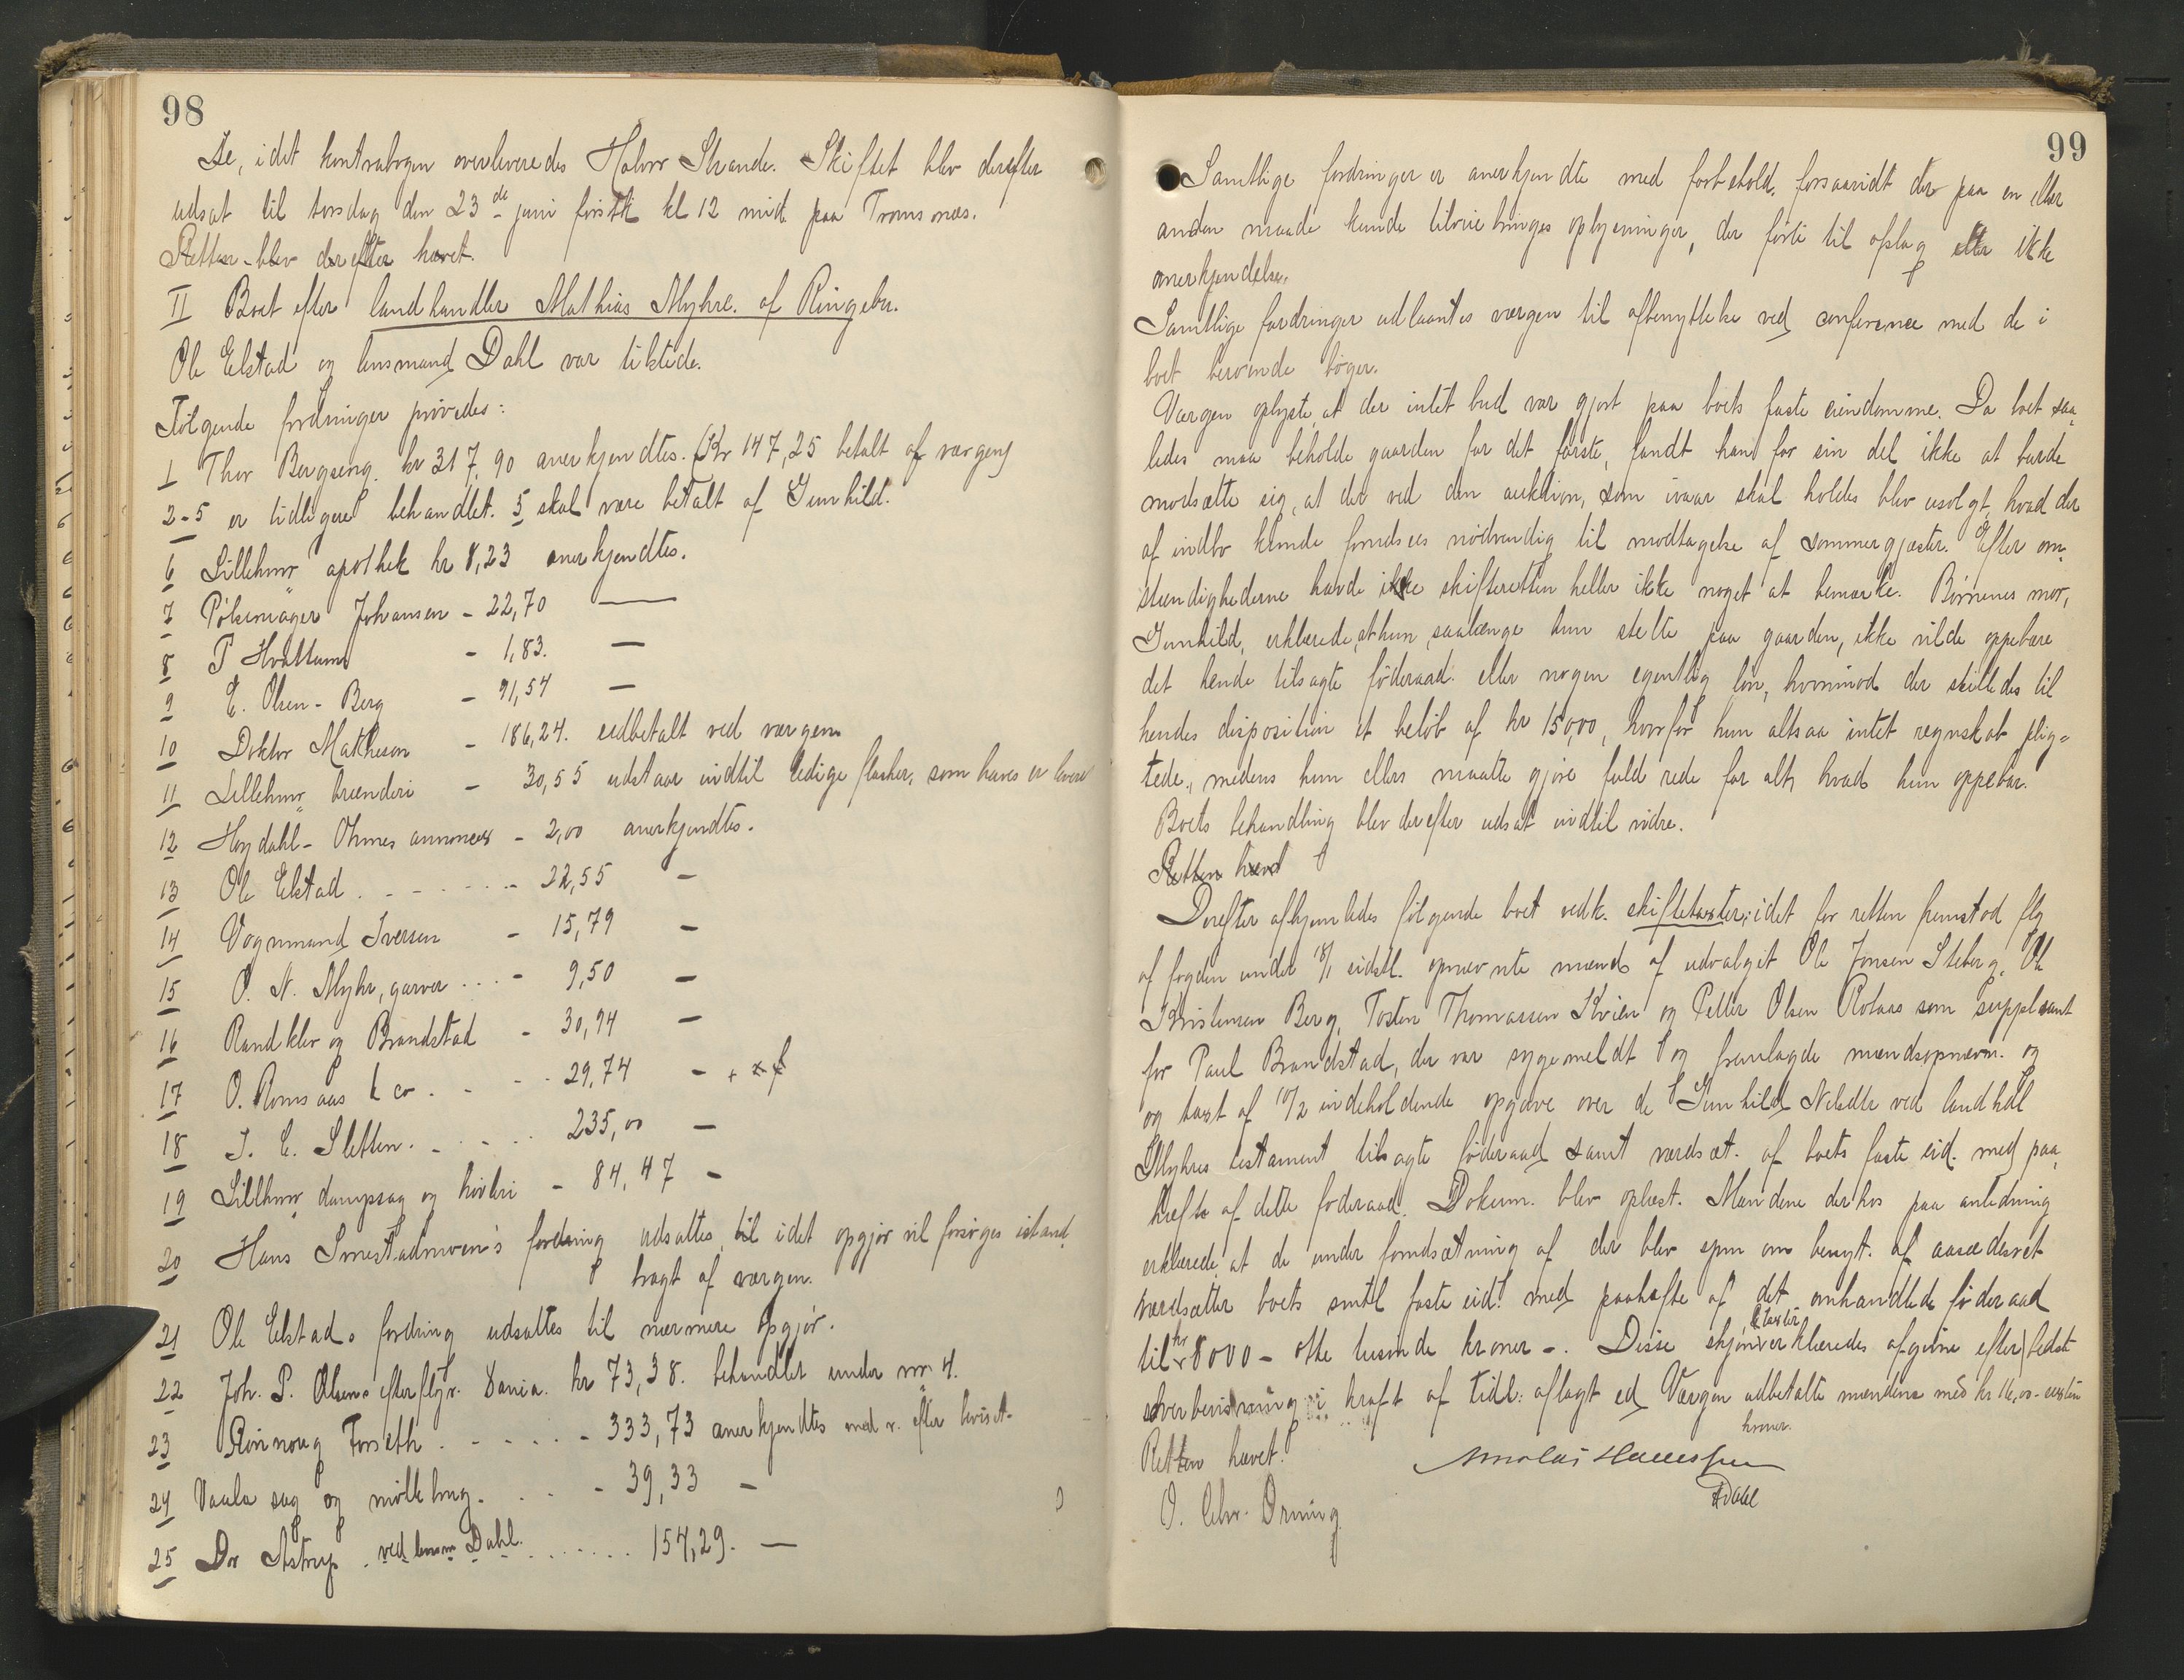 98
De, idet kontrabogen overleveredes Halvor Strande. Skiftet blev derefter
udsat til torsdag den 23de juni førstk kl 12 mid. paa Tromsnes.
Retten blev derefter hævet.
II Boet efter landhandler Mathias Myhre af Ringebu.
Ole Elstad og lensmand Dahl var tilstede.
Følgende fordringer prøvedes:
1 Thor Bergseng kr 317,90 anerkjendtes. (Kr 147,25 betalt af værgen)
2-5 er tidligere behandlet. 5 skal være betalt af Gunhild.
6 Lillehmr apothek kr 8,23 anerkjendtes.
7 Pølsemager Johansen - 22,70 —
8 P Hvattum - 1,83. —
9 E. Olsen - Berg - 91,54 —
10 Doktor Matheson - 186,24. udbetalt ved værgen
11 Lillehmr brænderi - 30,55 udstaar indtil ledige flasker, som haves er levert
12 Høydahl - Ohmes annoncer - 2,00 anerkjendtes.
13 Ole Elstad - 22,55 -
14 Vognmand Iversen - 15,79 -
15 O. N. Myhr, garver - 9,50 -
16 Randklev og Brandstad - 30,94 -
17 O. Romsaas & co - 29,74 -
18 J. E. Sletten - 235,00 -
19 Lillehmr dampsag og høvleri - 84,47 -
20 Hans Smestadmoen's fordring udsattes til idet opgjør vil forsøges istand
bragt af værgen.
21 Ole Elstads fordring udsattes til nærmere opgjør.
22 Joh. P. Olsens efterflgr. Dania. kr 73,38. behandlet under nr 4.
23 Rønnoug Forseth - 333,73 anerkjendtes med r. efter beviset.
24 Vaala sag og møllebrug - 39,33 -
25 Dr Astrup ved lensm Dahl 154,29. —
99
Samtlige fordringer er anerkjendte med forbehold, forsaavidt der paa en eller
anden maade kunde tilveiebringes oplysninger, der førte til afslag eller ikke
anerkjendelse.
Samtlige fordringer udlaantes værgen til afbenyttelse ved conference med de i
boet beroende bøger.
Værgen oplyste, at der intet bud var gjort paa boets faste eiendomme. Da boet saa
ledes maa beholde gaarden for det første, fandt han for sin del ikke at burde
modsætte sig, at der ved den auktion, som ivaar skal holdes blev usolgt, hvad der
af indbo kunde forudsees nødvendig til modtagelse af sommergjæster. Efter om
stændighederne havde skifteretten heller ikke noget at bemærke. Børnenes mor,
Gunhild, erklærede, at hun, saalænge hun stelte paa gaarden, ikke vilde oppebære
det hende tilsagte føderaad eller nogen egentlig løn, hvorimod der stilledes til
hendes disposition et beløb af kr 150,00, hvorfor hun altsaa intet regnskab plig-
tede, medens hun ellers maatte gjøre fuld rede for alt, hvad hun oppebar.
Boets behandling blev derefter udsat indtil videre.
Retten hævet
Derefter afhjemledes følgende boet vedk. skiftetaxter, idet for retten fremstod flg
af fogden under 18/1 sidstl. opnævnte mænd af udvalget Ole Jonsen Steberg, Ole
Kristensen Berg, Tosten Thomassen Kvien og Petter Olsen Rolaas som suppleant
for Paul Brandstad, der var sygemeldt og fremlagde mændsopnævn. og
og taxt af 10/2 indeholdende opgave over de Gunhild ved landhdl
Myhres testament tilsagte føderaad samt værdsæt. af boets faste eid. med paa
hæfte af dette føderaad. Dokum. blev oplæst. Mændene derhos paa anledning
erklærede, at de under forudsætning af der blev spm om benyt. af aasædesret
værdsætter boets smtl faste eid. med paahæfte af det omhandlede føderaad
til kr 8000 - otte tusinde kroner -. Disse skjøn & taxter erklæredes afgivne efter bedste
overbevisning i kraft af tidl. aflagt ed Værgen udbetalte mændene med kr 16,00 - sexten
kroner.
Retten hævet.
Dahl
O. Chr. Orning